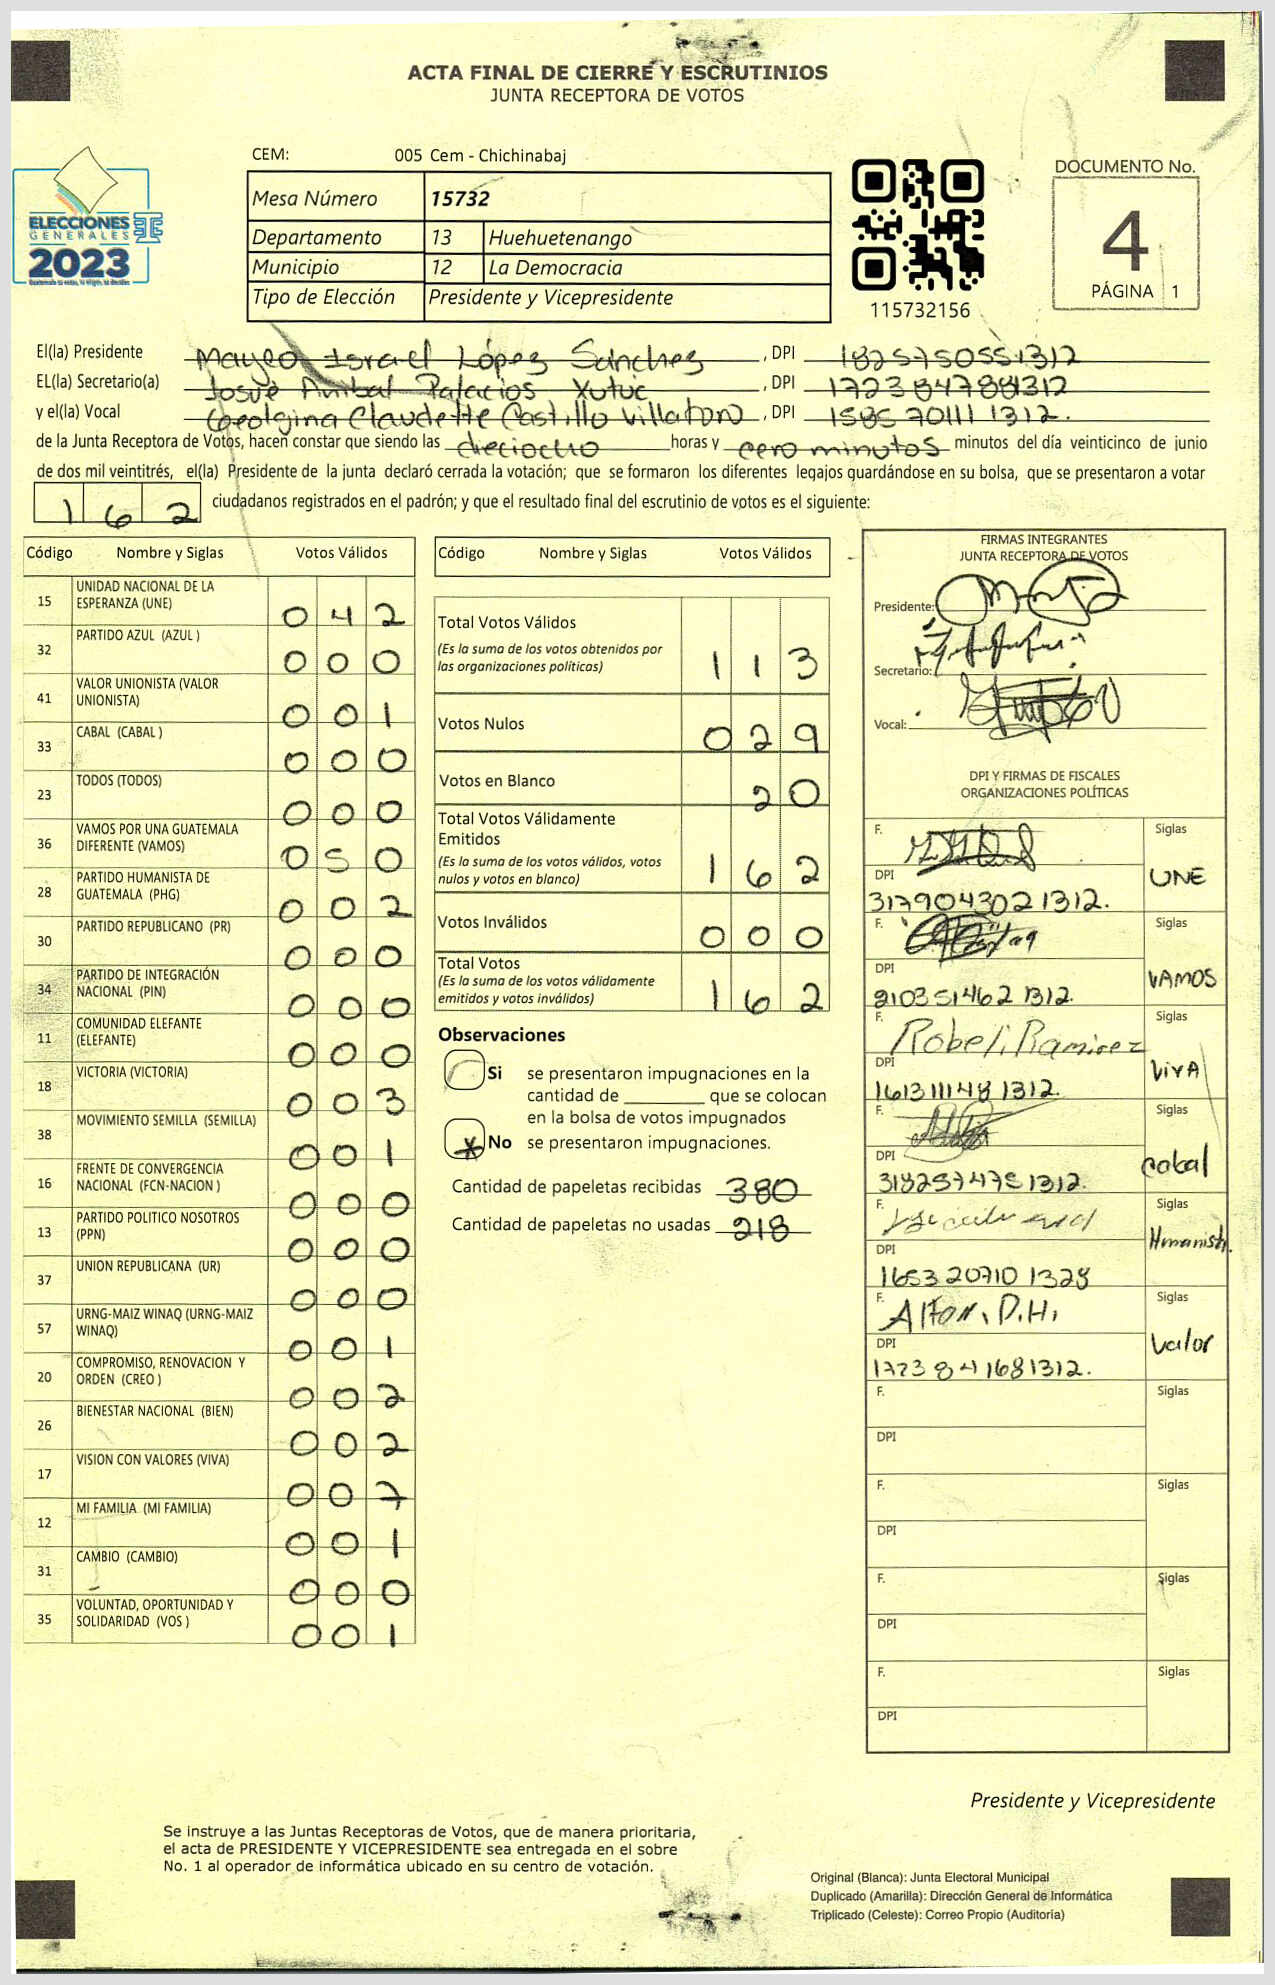 ACTA FINAL DE CIERRE Y ESCRUTINIOS
JUNTA RECEPTORA DE VOTOS
CEM: 005 Cem - Chichinabaj
ELECCIONES
GENERALES
2023
Mesa Número 15732
Departamento 13 Huehuetenango
Municipio 12 La Democracia
Tipo de Elección Presidente y Vicepresidente
115732156
DOCUMENTO No.
4
PÁGINA 1
El(la) Presidente Israel López Sánchez, DPI 1825750551312
EL(la) Secretario(a) Josue Anibal Palacios Xutuc, DPI 1723847881312
y el(la) Vocal Georgina Claudette Castillo Villatoro, DPI 1585 70111 1312.
de la Junta Receptora de Votos, hacen constar que siendo las dieciocho horas y cero minutos minutos del día veinticinco de junio
de dos mil veintitrés, el(la) Presidente de la junta declaró cerrada la votación; que se formaron los diferentes legajos guardándose en su bolsa, que se presentaron a votar
162 ciudadanos registrados en el padrón; y que el resultado final del escrutinio de votos es el siguiente:
Código Nombre y Siglas Votos Válidos
15 UNIDAD NACIONAL DE LA ESPERANZA (UNE) 042
32 PARTIDO AZUL (AZUL ) 000
41 VALOR UNIONISTA (VALOR UNIONISTA) 001
33 CABAL (CABAL ) 000
23 TODOS (TODOS) 000
36 VAMOS POR UNA GUATEMALA DIFERENTE (VAMOS) 050
28 PARTIDO HUMANISTA DE GUATEMALA (PHG) 002
30 PARTIDO REPUBLICANO (PR) 000
34 PARTIDO DE INTEGRACIÓN NACIONAL (PIN) 000
11 COMUNIDAD ELEFANTE (ELEFANTE) 000
18 VICTORIA (VICTORIA) 003
38 MOVIMIENTO SEMILLA (SEMILLA) 001
16 FRENTE DE CONVERGENCIA NACIONAL (FCN-NACION ) 000
13 PARTIDO POLITICO NOSOTROS (PPN) 000
37 UNION REPUBLICANA (UR) 000
57 URNG-MAIZ WINAQ (URNG-MAIZ WINAQ) 001
20 COMPROMISO, RENOVACION Y ORDEN (CREO ) 002
26 BIENESTAR NACIONAL (BIEN) 002
17 VISION CON VALORES (VIVA) 007
12 MI FAMILIA (MI FAMILIA) 001
31 CAMBIO (CAMBIO) 000
35 VOLUNTAD, OPORTUNIDAD Y SOLIDARIDAD (VOS ) 001
Código Nombre y Siglas Votos Válidos
Total Votos Válidos 113
(Es la suma de los votos obtenidos por
las organizaciones políticas)
Votos Nulos 029
Votos en Blanco 20
Total Votos Válidamente
Emitidos 162
(Es la suma de los votos válidos, votos
nulos y votos en blanco)
Votos Inválidos 000
Total Votos 162
(Es la suma de los votos válidamente
emitidos y votos inválidos)
Observaciones
Si se presentaron impugnaciones en la
cantidad de ________ que se colocan
en la bolsa de votos impugnados
No se presentaron impugnaciones.
Cantidad de papeletas recibidas 380
Cantidad de papeletas no usadas 218
FIRMAS INTEGRANTES
JUNTA RECEPTORA DE VOTOS
Presidente:
Secretario:
Vocal:
DPI Y FIRMAS DE FISCALES
ORGANIZACIONES POLÍTICAS
F. Siglas
DPI UNE
3179043021312.
F. Siglas
DPI VAMOS
210351462 1312.
F. Robeli Ramirez Siglas
DPI VIVA
161311148 1312.
F. Siglas
DPI cabal
3182574751312.
F. Siglas
DPI
1653 20710 1328
F. D.H. Siglas
DPI Valor
1723 841681312.
F. Siglas
DPI
F. Siglas
DPI
F. Siglas
DPI
F. Siglas
DPI
Presidente y Vicepresidente
Se instruye a las Juntas Receptoras de Votos, que de manera prioritaria,
el acta de PRESIDENTE Y VICEPRESIDENTE sea entregada en el sobre
No. 1 al operador de informática ubicado en su centro de votación.
Original (Blanca): Junta Electoral Municipal
Duplicado (Amarilla): Dirección General de Informática
Triplicado (Celeste): Correo Propio (Auditoría)